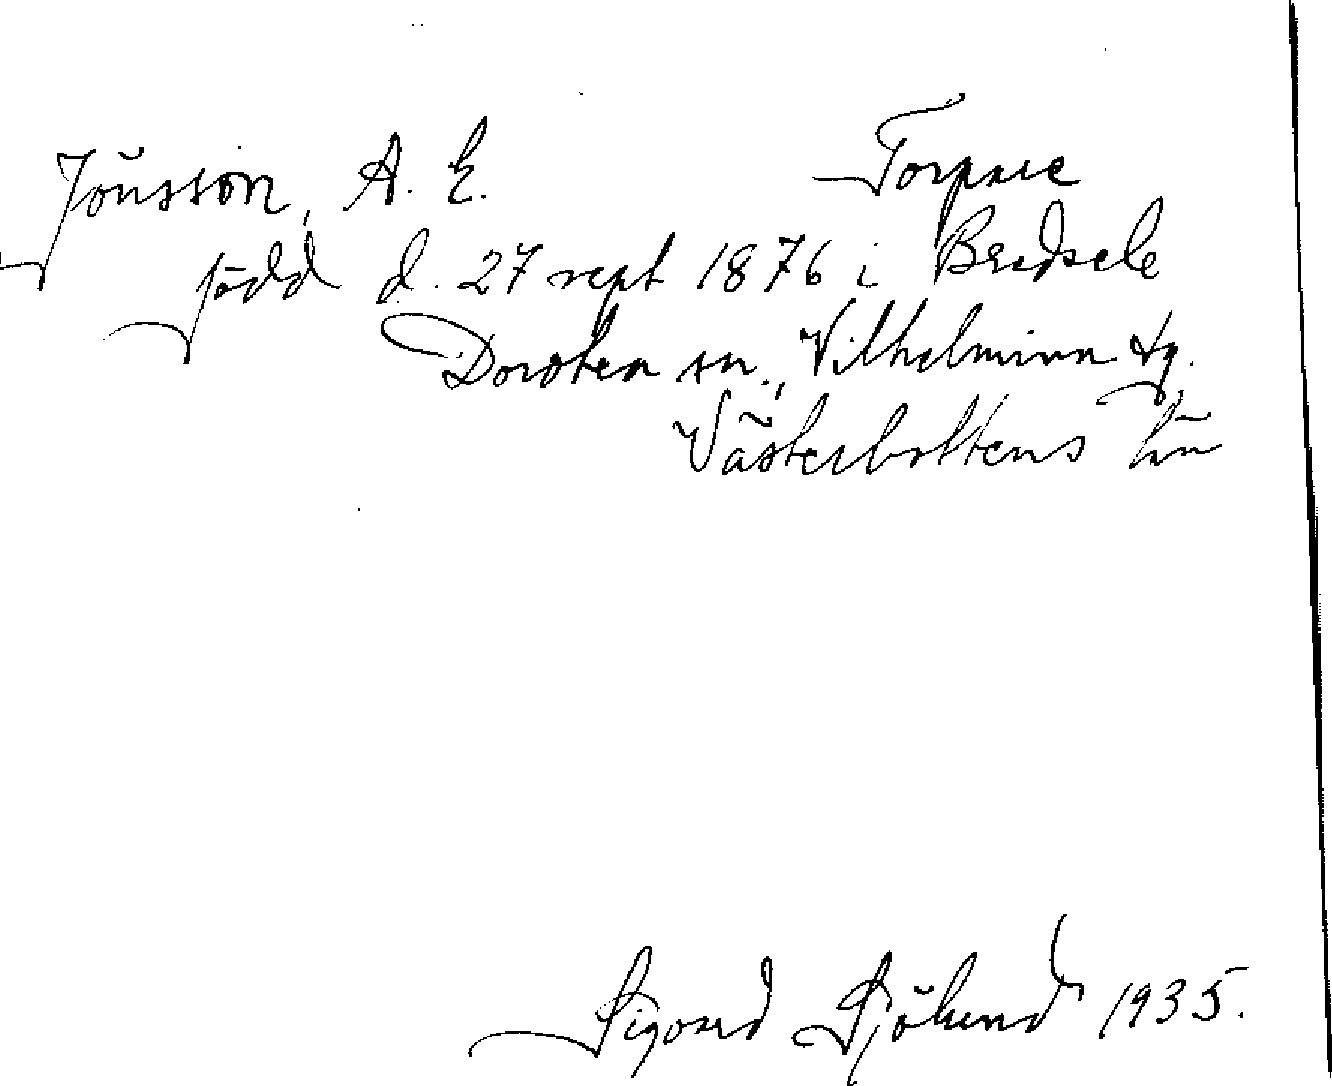 Jonsson, A. E. Torpare
född d. 27 sept 1876 i Bredsele
Dorotea sn., Vilhelmina tg.
Västerbottens län
Sigurd Sjölund 1935.